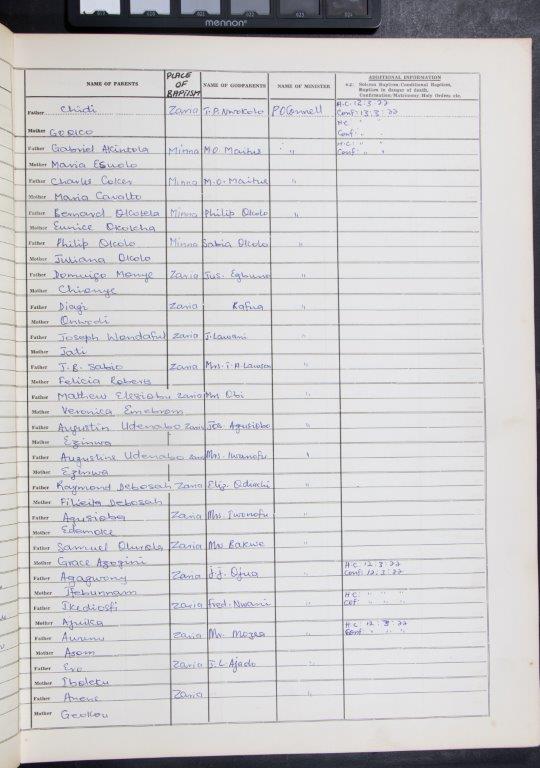 mennon
NAME OF PARENTS PLACE OF BAPTISM NAME OF GODPARENTS NAME OF MINISTER ADDITIONAL INFORMATION
e.g. Solemn Baptism/Conditional Baptism,
Baptism in danger of death,
Confirmation/Matrimony/Holy Orders, etc.
Father Chidi Zaria T.P. Nwokolo P O'Connell H.C. 12.3.22
Conf: 13.3.22
Mother GODICO H.C. " "
Conf: " "
Father Gabriel Akintola Minna M.O. Maitus " H.C: " "
Conf: " "
Mother Maria Esuolo
Father Charles Coker Minna M.O. Maitus "
Mother Maria Cavalto
Father Bernard Okolela Minna Philip Okolo "
Mother Eunice Okolcha
Father Philip Okolo Minna Sabia Okolo "
Mother Juliana Okolo
Father Domingo Monye Zaria Jus. Egbuno "
Mother Chionye
Father Diagi Zaria Kafua "
Mother Onwodi
Father Joseph Wondaful Zaria J. Lawani "
Mother Jali
Father J.R. Sabio Zaria Mrs. T.A. Lawson "
Mother Felicia Roberts
Father Mathew Elesiobu Zaria Mrs Obi "
Mother Veronica Emebrom
Father Augustin Udenabo Zaria Jos. Agusiobo "
Mother Ezinwa
Father Augustine Udenabo Zaria Mrs. Iwunofu "
Mother Ezinwa
Father Raymond Debosah Zaria Eliz. Oduchi "
Mother Filicita Debosah
Father Agusioba Zaria Mrs Iwonofu "
Mother Edemoke
Father Samuel Olurola Zaria Mr. Bakwe "
Mother Grace Azogini
Father Agagwony Zaria J.J. Ojua " H.C. 12.3.22
Conf: 12.3.22
Mother Ifebunnam
Father Ikediosfi Zaria Fred. Nwani " H.C. " " "
Cof: " " "
Mother Afuika
Father Awunu Zaria Mr. Mozea " H.C. 12.3.22
Conf: " " "
Mother Asom
Father Ero Zaria J.L. Ajado "
Mother Iboleku
Father Anene Zaria "
Mother Geokou